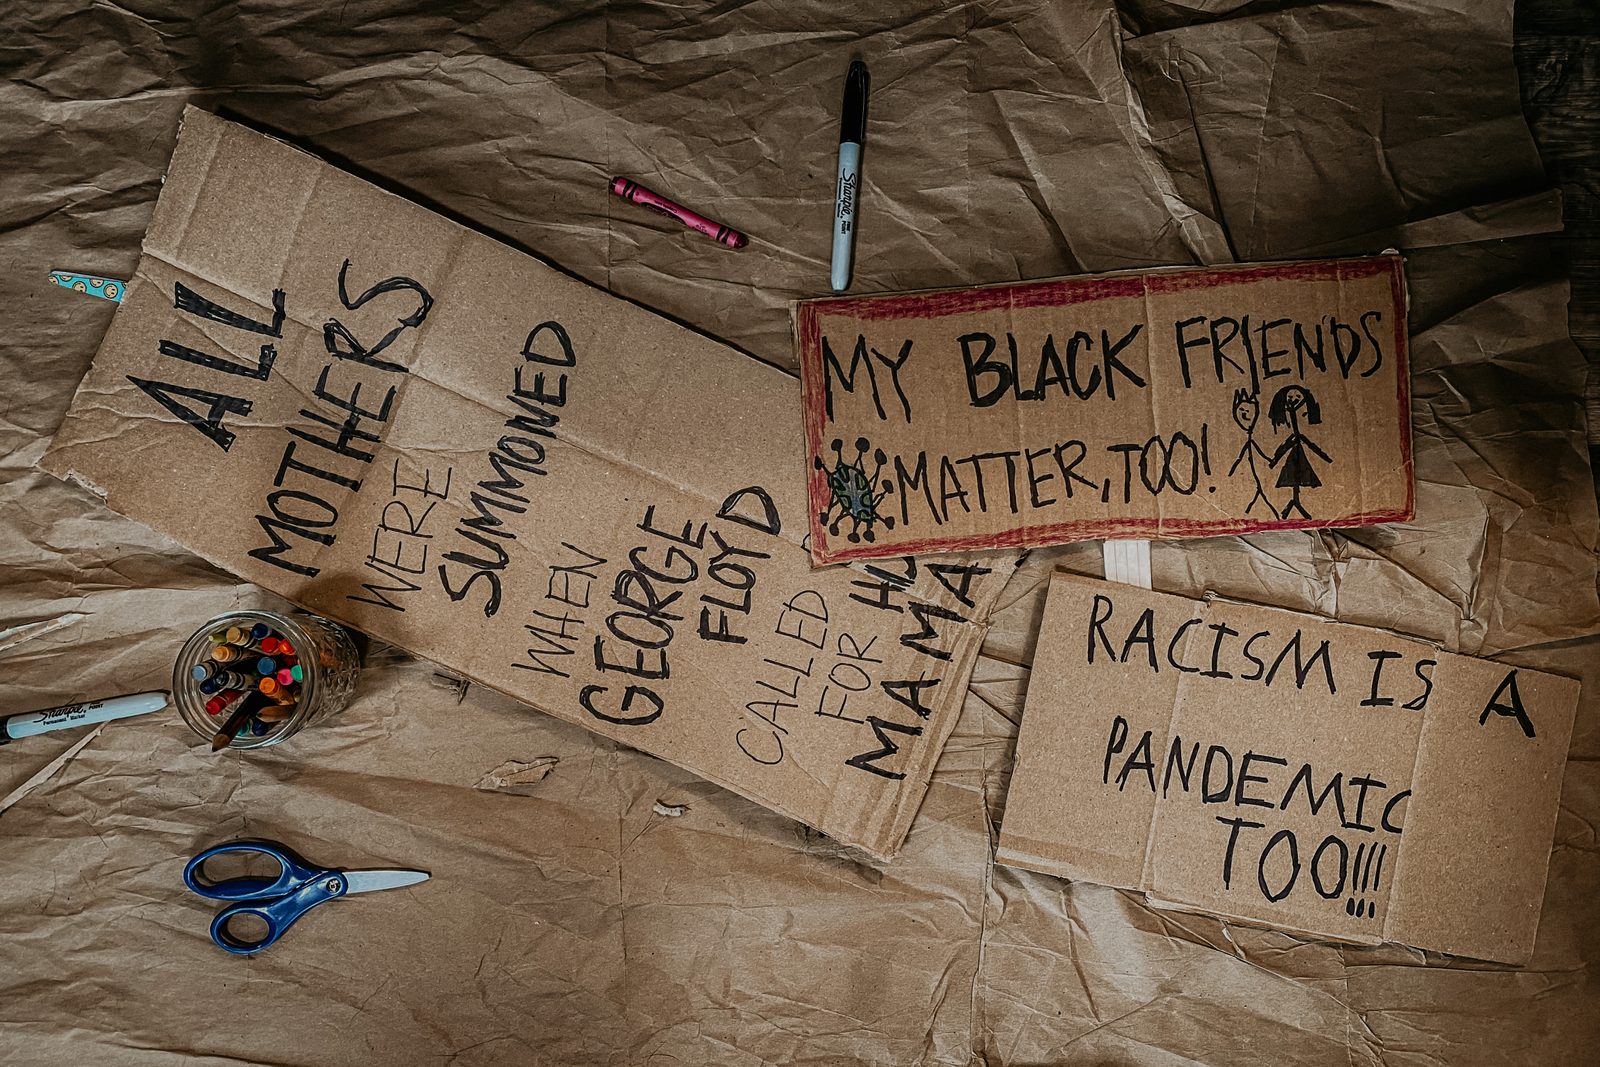 ALL
MOTHERS
WERE
SUMMONED
WHEN
GEORGE
FLOYD
CALLED
FOR
MAMA
MY BLACK FRIENDS
MATTER, TOO!
RACISM IS A
PANDEMIC
TOO!!!
Sharpie
FINE POINT
Sharpie
Permanent Marker